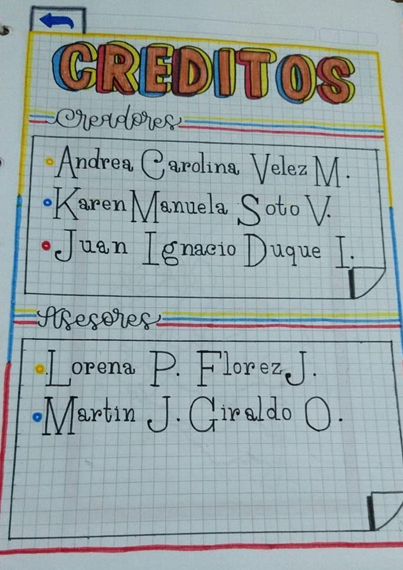 CREDITOS
Creadores
Andrea Carolina Velez M.
Karen Manuela Soto V.
Juan Ignacio Duque I.
Asesores
Lorena P. Florez J.
Martin J. Giraldo O.